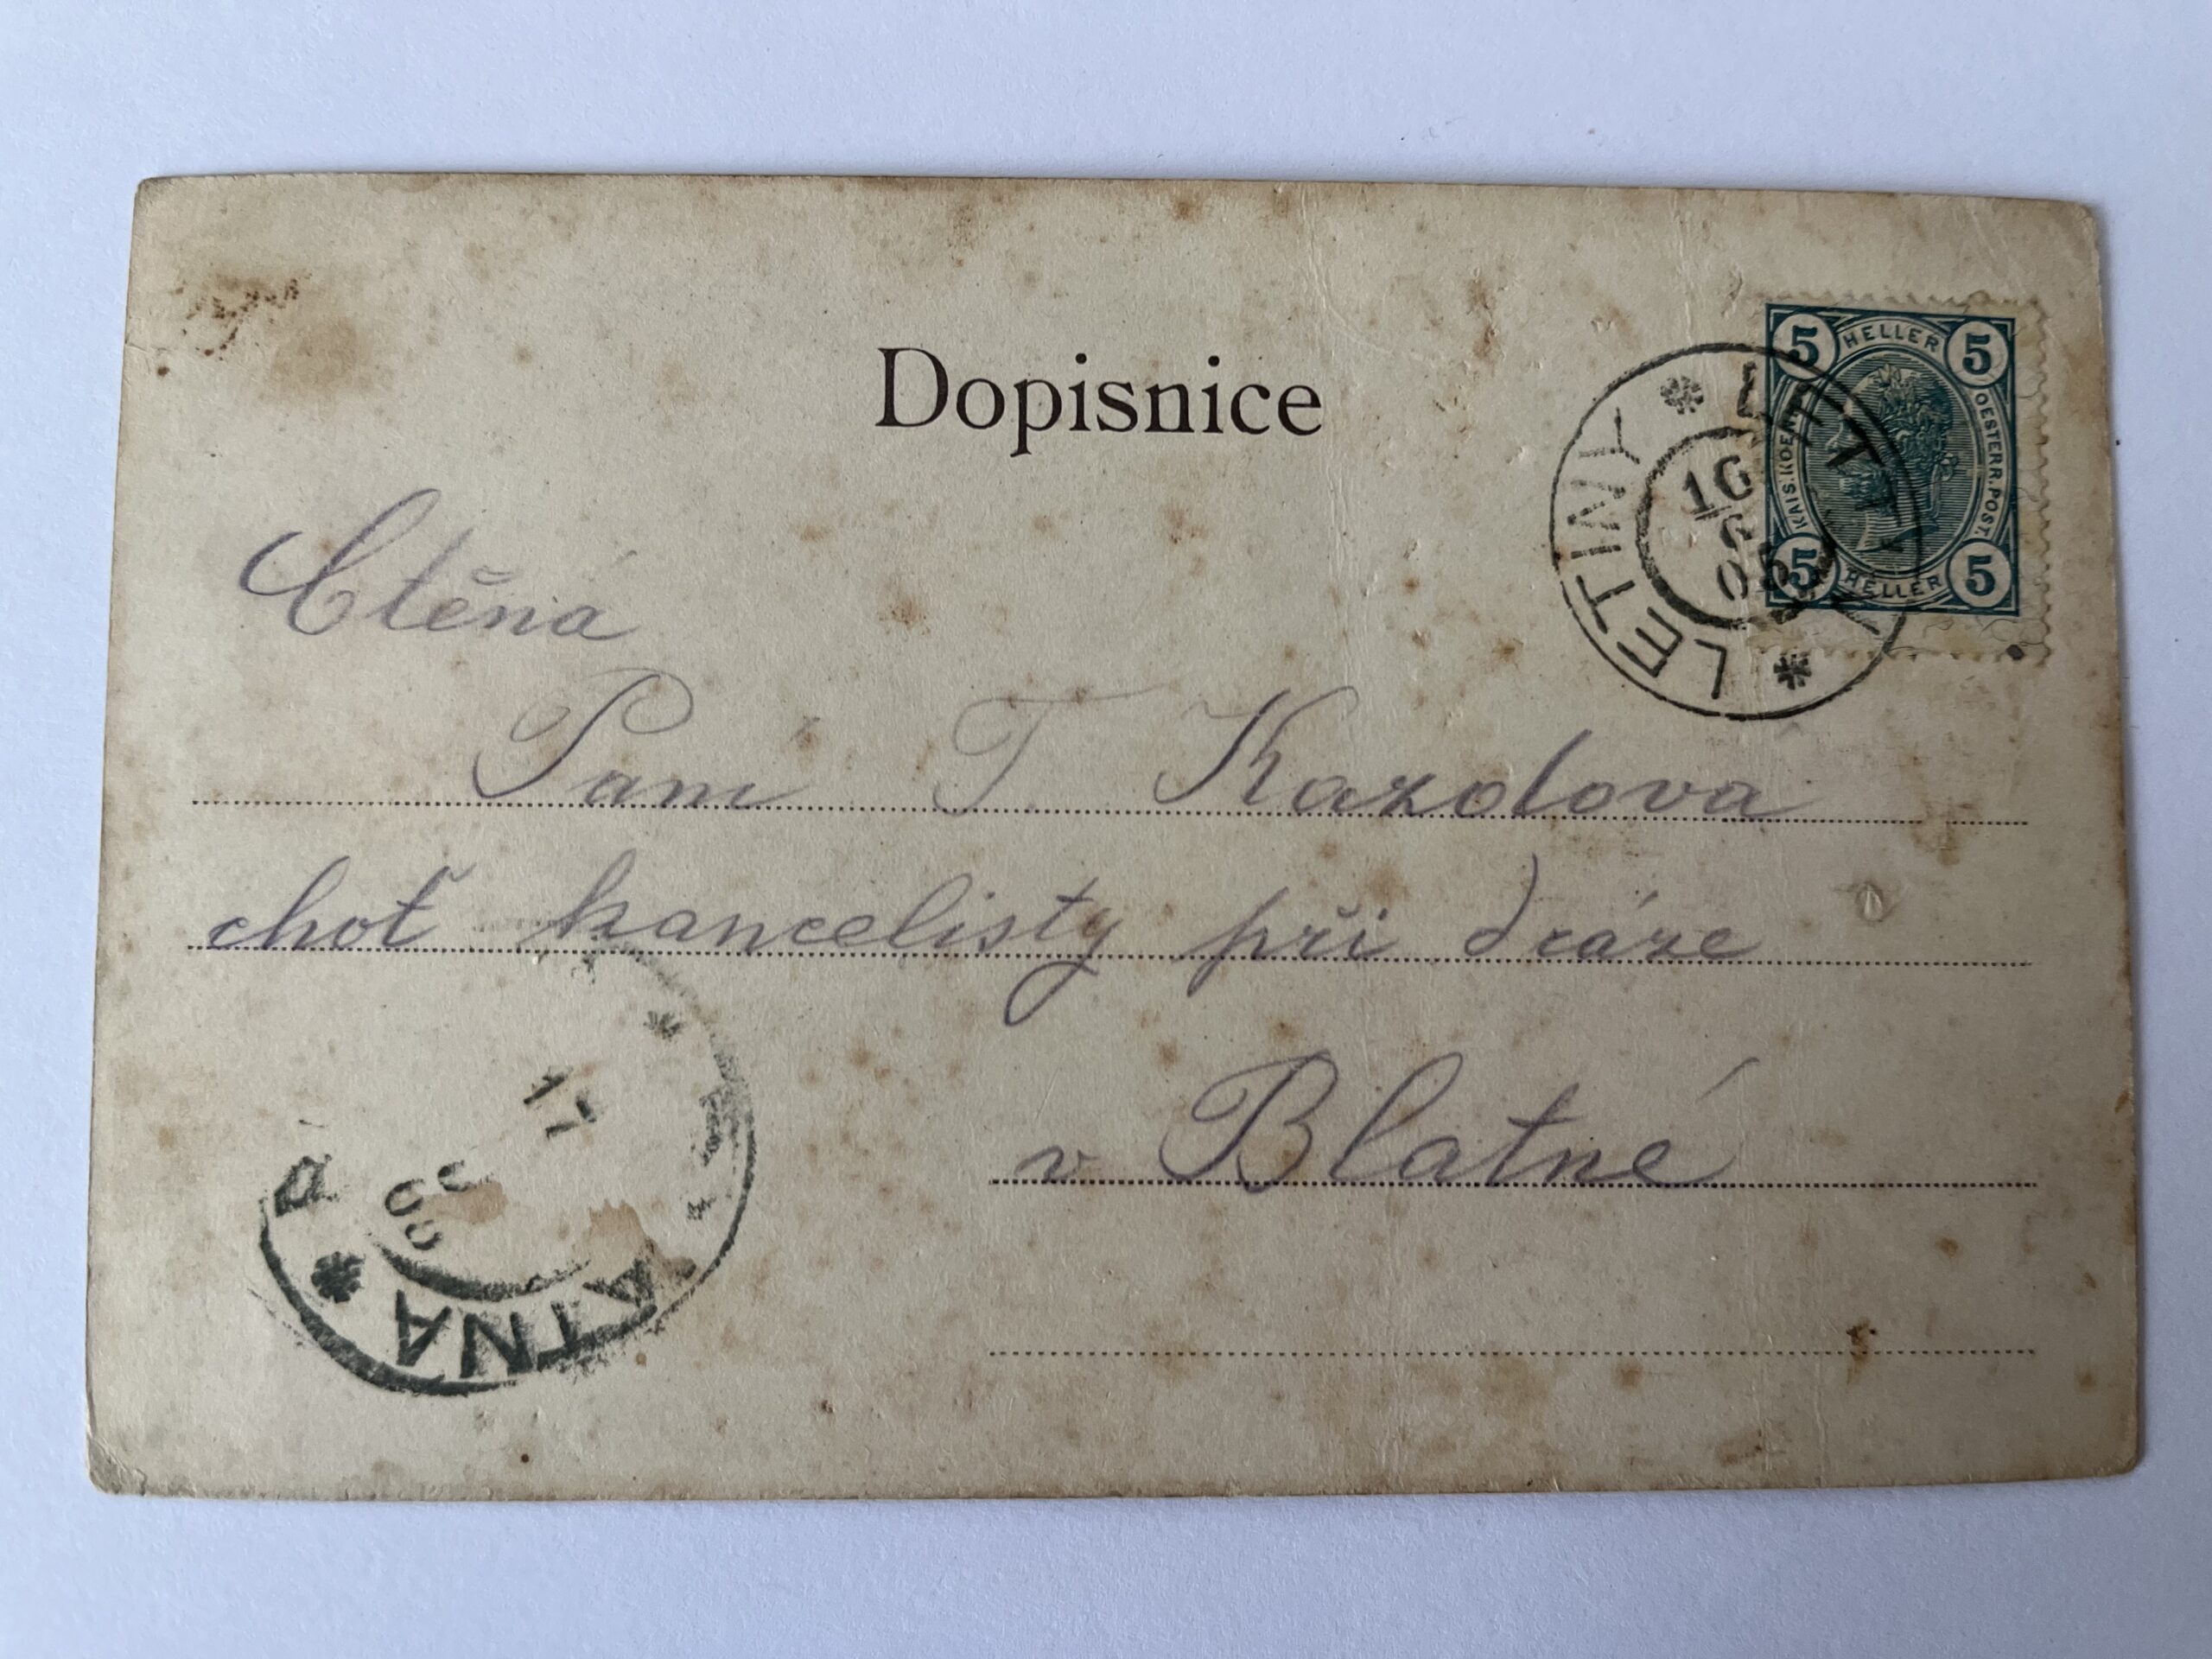 Dopisnice
5 HELLER 5
KAIS. KOENIGL. OESTERR. POST.
5 HELLER 5
LETINY
16
05
Ctěná
Paní T. Kazdova
choť kancelisty při dráze
v Blatné
17